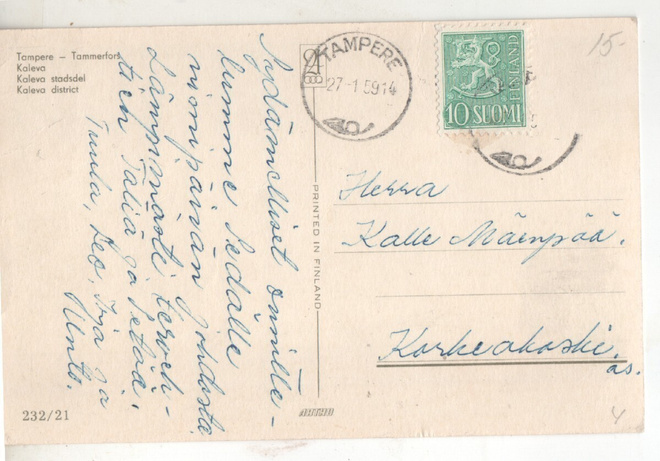 Tampere – Tammerfors
Kaleva
Kaleva stadsdel
Kaleva district
Sydämelliset onnitte-
lumme Sedälle
nimipäivän johdosta
Lämpimästi terveh-
tien Tätiä ja Setää.
Tuula, Leo, Irja ja
Unto.
232/21
PRINTED IN FINLAND
TAMPERE
27-1 59 14
10 SUOMI
FINLAND
15-
Herra
Kalle Mäenpää.
Korkeakoski.
as.